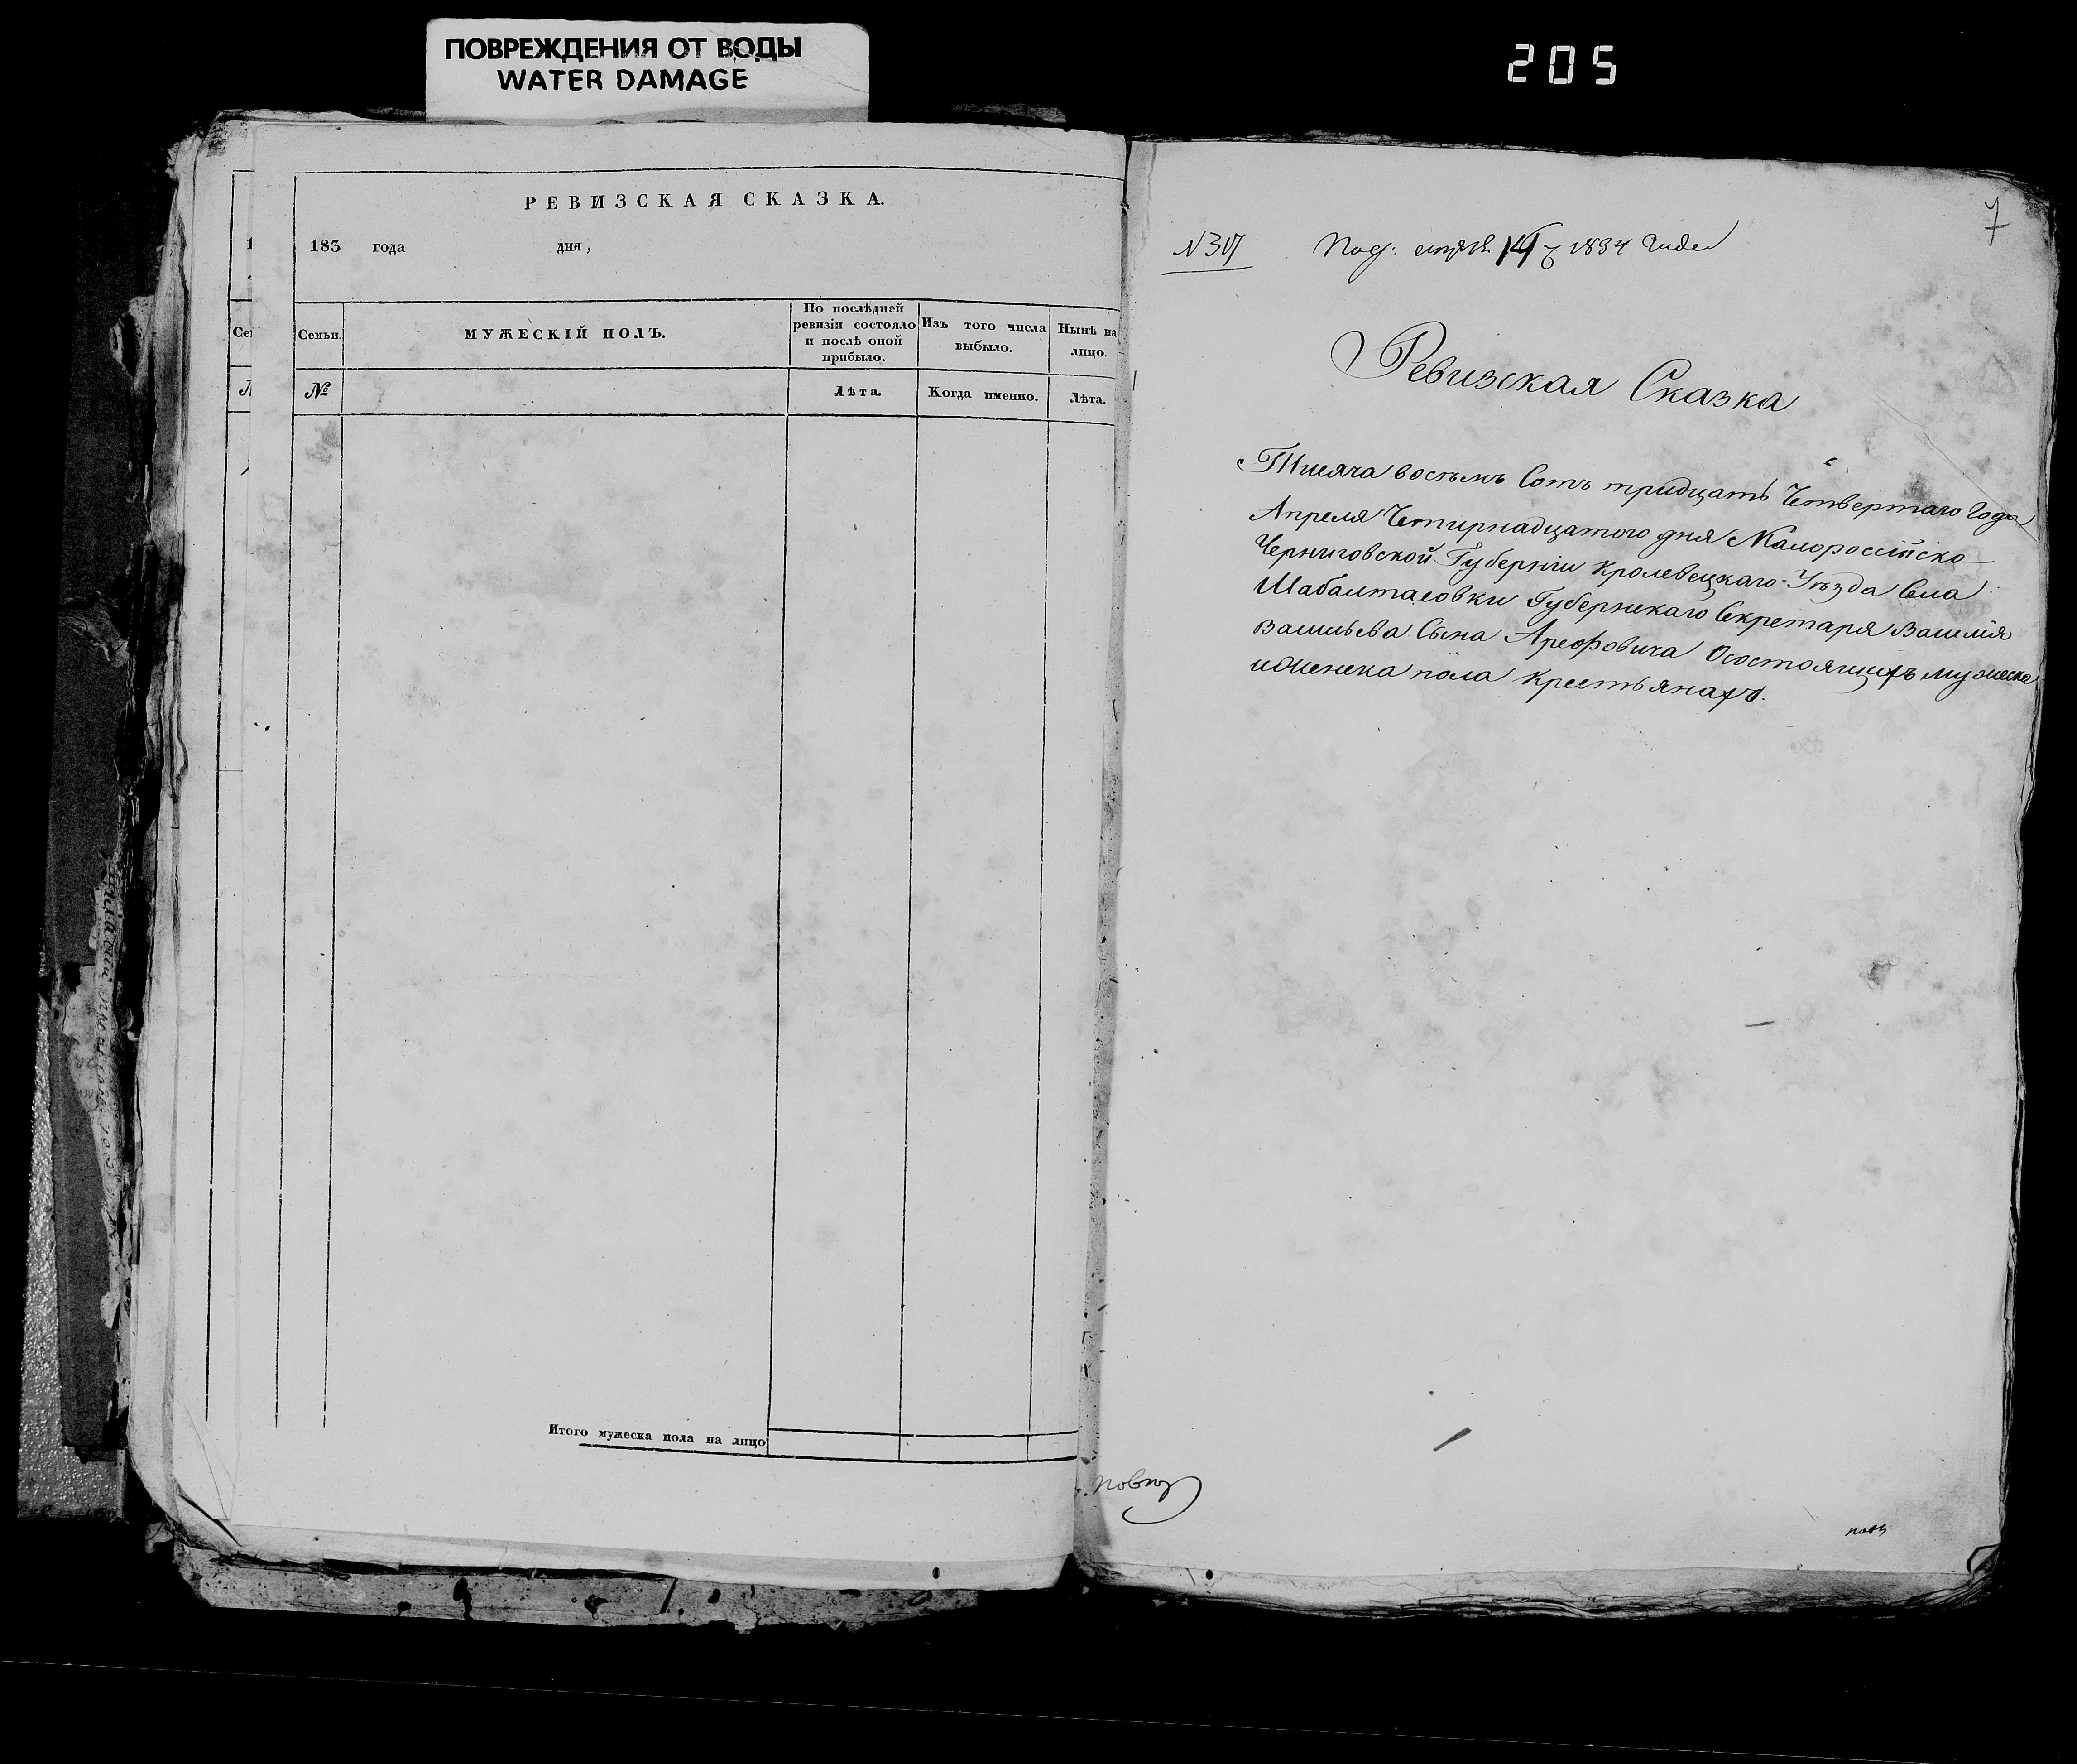 ПОВРЕЖДЕНИЯ ОТ ВОДЫ
WATER DAMAGE
205
РЕВИЗСКАЯ СКАЗКА.
183 года дня,
Семьи.
МУЖЕСКІЙ ПОЛЪ.
По послѣдней
ревизіи состояло
и послѣ оной
прибыло.
Изъ того числа
выбыло.
Нынѣ на
лицо.
№
Лѣта.
Когда именно.
Лѣта.
Итого мужеска пола на лицо
7
1834 года
Ревизская Сказка
Тисяча восемъ Сотъ тридцать Четвертаго Года
Апреля Четирнадцатого дня Малоросійско
Черниговской Губерніи Кролевецкаго Уѣзда Села
Шабалтасовки Губернскаго Секретаря Василія
Васильева Сына Арефовича Осостоящихъ мужеска
иженска пола Крестьянахъ.